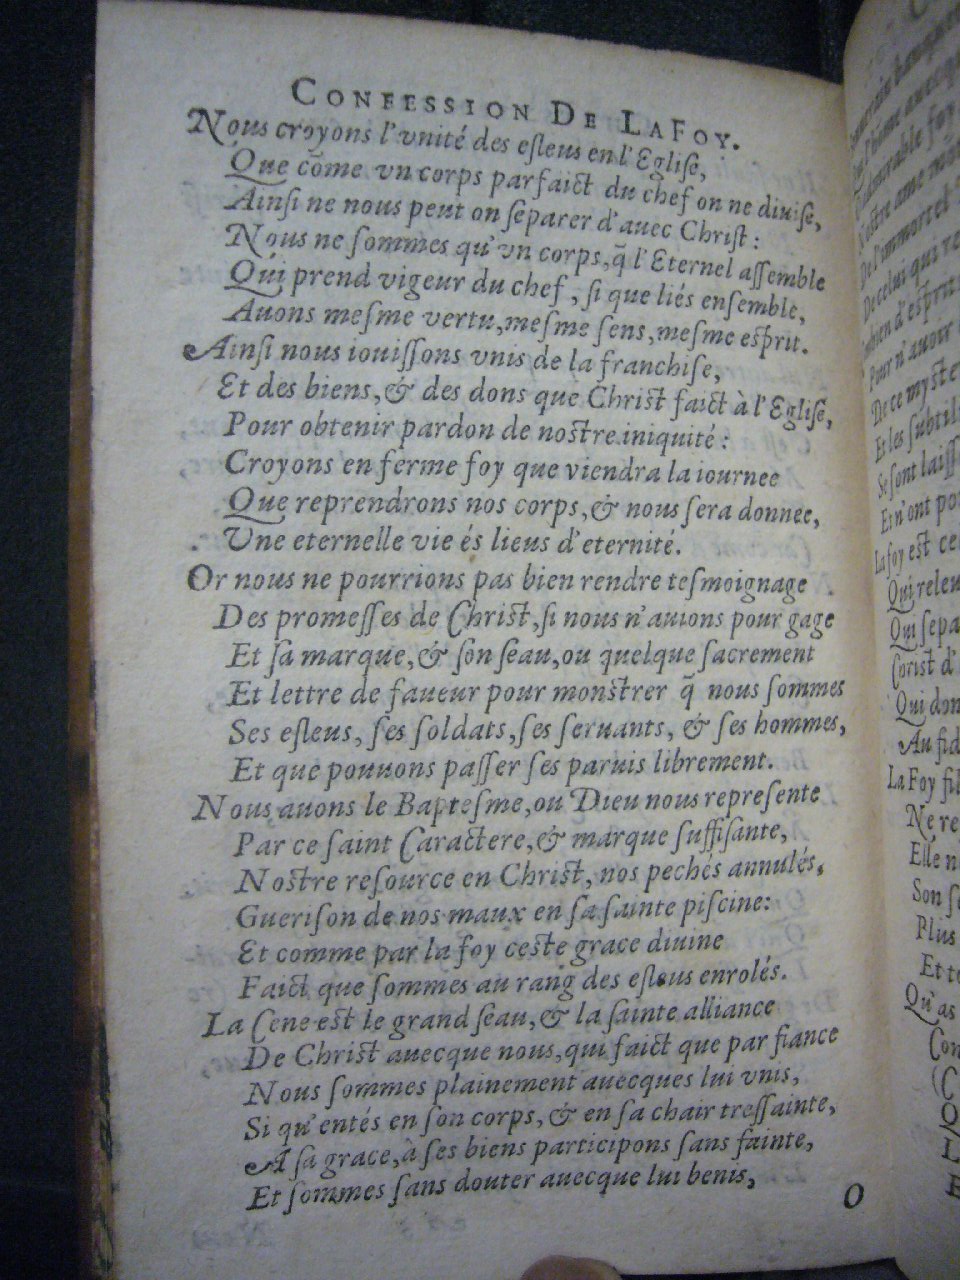 CONFESSION DE LA FOY.
Nous croyons l'vnité des esleus en l'Eglise,
Que cõme vn corps parfaict du chef on ne diuise,
Ainsi ne nous peut on separer d'auec Christ:
Nous ne sommes qu'vn corps, q̃ l'Eternel assemble
Qui prend vigeur du chef, si que liés ensemble,
Auons mesme vertu, mesme sens, mesme esprit.
Ainsi nous iouissons vnis de la franchise,
Et des biens, & des dons que Christ faict à l'Eglise,
Pour obtenir pardon de nostre iniquité:
Croyons en ferme foy que viendra la iournee
Que reprendrons nos corps, & nous sera donnee,
Une eternelle vie és lieus d'eternité.
Or nous ne pourrions pas bien rendre tesmoignage
Des promesses de Christ, si nous n'auions pour gage
Et sa marque, & son seau, ou quelque sacrement
Et lettre de faueur pour monstrer q̃ nous sommes
Ses esleus, ses soldats, ses seruants, & ses hommes,
Et que pouuons passer ses paruis librement.
Nous auons le Baptesme, ou Dieu nous represente
Par ce saint Caractere, & marque suffisante,
Nostre resource en Christ, nos pechés annulés,
Guerison de nos maux en sa sainte piscine:
Et comme par la foy ceste grace diuine
Faict que sommes au rang des esleus enrolés.
La Cene est le grand seau, & la sainte alliance
De Christ auecque nous, qui faict que par fiance
Nous sommes plainement auecques lui vnis,
Si qu'entés en son corps, & en sa chair tressainte,
A sa grace, à ses biens participons sans fainte,
Et sommes sans douter auecque lui benis,
O
De l'immortel
De celui qui
Pour n'auoir
De ce myste
Et les subtil
Se sont laiss
Et n'ont po
La foy est ce
Qui releu
Qui sepa
Christ d'
Qui don
Au fid
La Foy fil
Ne re
Elle n
Son se
Plus
Et to
Qu'as
Con